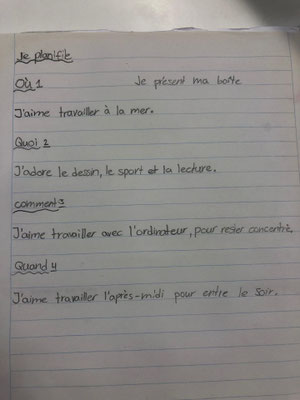 Je planifie
Où 1 Je présent ma boîte
J'aime travailler à la mer.
Quoi 2
J'adore le dessin, le sport et la lecture.
comment 3
J'aime travailler avec l'ordinateur, pour rester concentré.
Quand 4
J'aime travailler l'après-midi pour entre le soir.